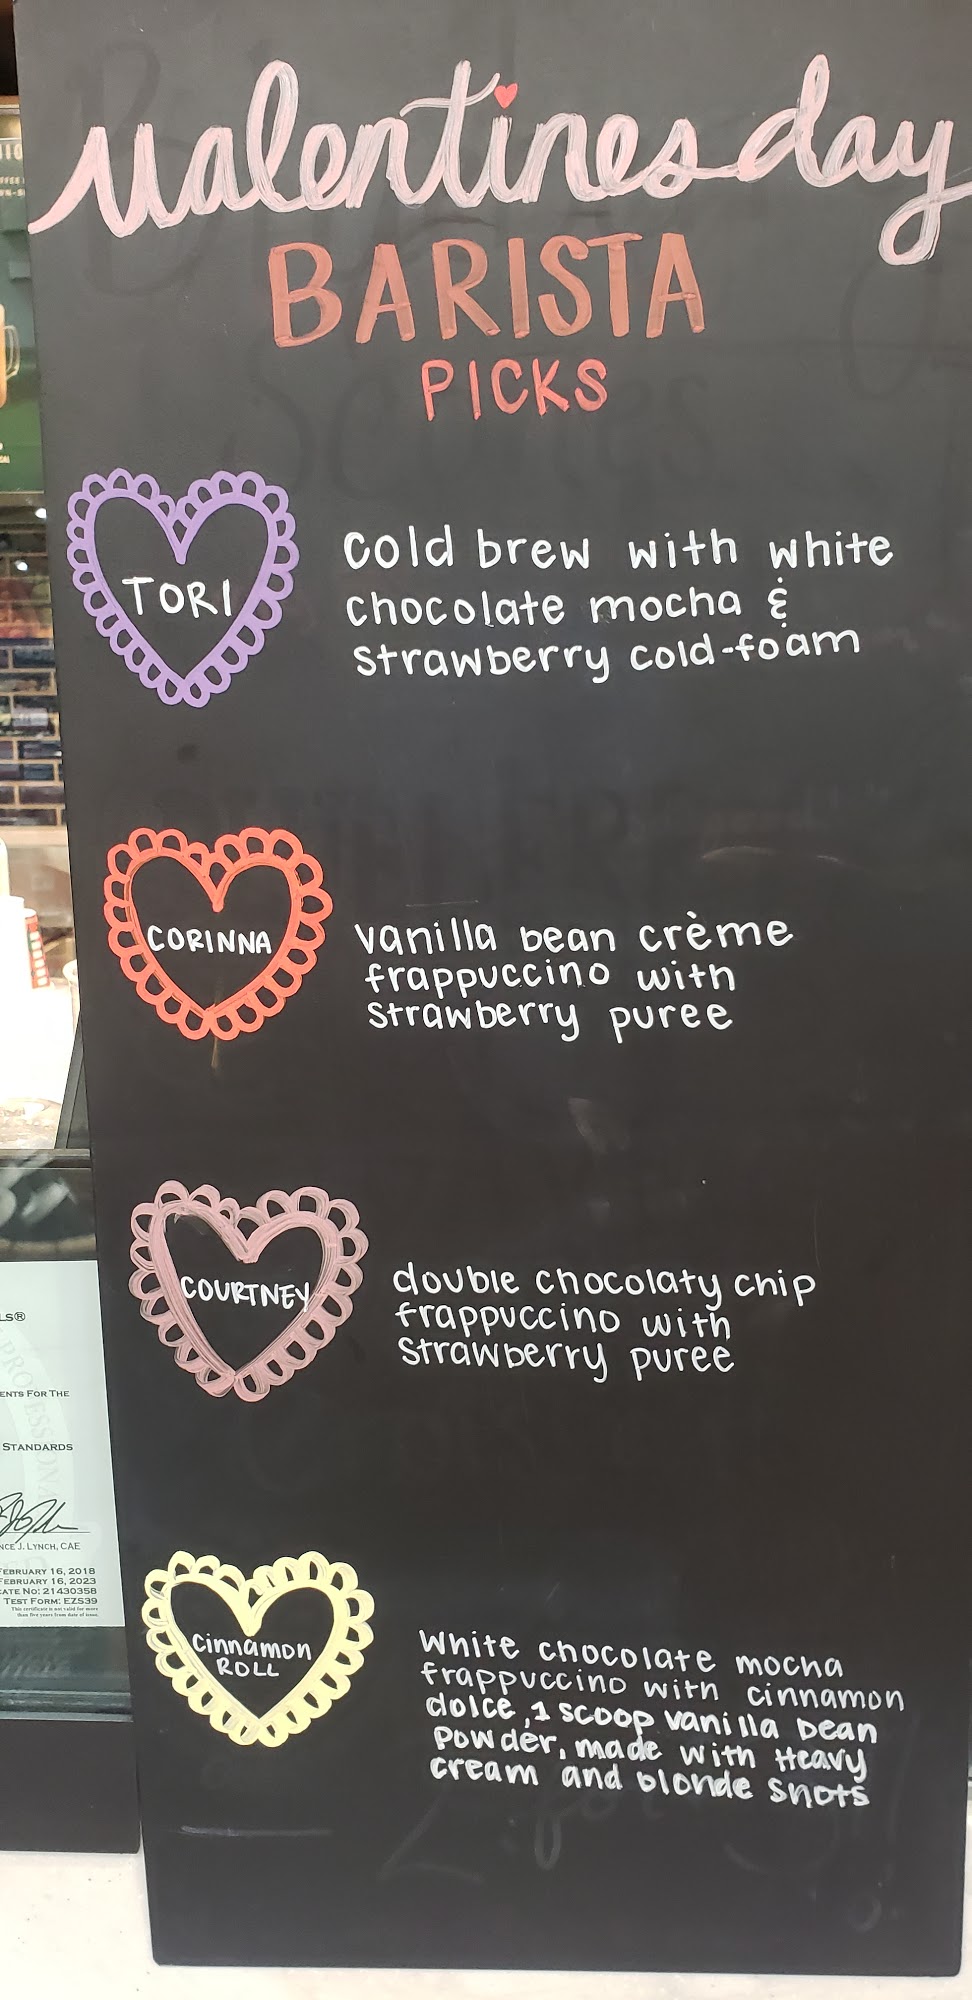 Valentines day
BARISTA
PICKS
TORI
cold brew with white
chocolate mocha &
strawberry cold-foam
CORINNA
vanilla bean crème
frappuccino with
strawberry puree
COURTNEY
double chocolaty chip
frappuccino with
strawberry puree
cinnamon
ROLL
White chocolate mocha
frappuccino with cinnamon
dolce, 1 scoop vanilla bean
powder, made with Heavy
cream and blonde shots
LS®
ENTS FOR THE
STANDARDS
NCE J. LYNCH, CAE
FEBRUARY 16, 2018
FEBRUARY 16, 2023
CATE NO: 21430358
TEST FORM: EZS39
This certificate is not valid for more
than five years from date of issue.